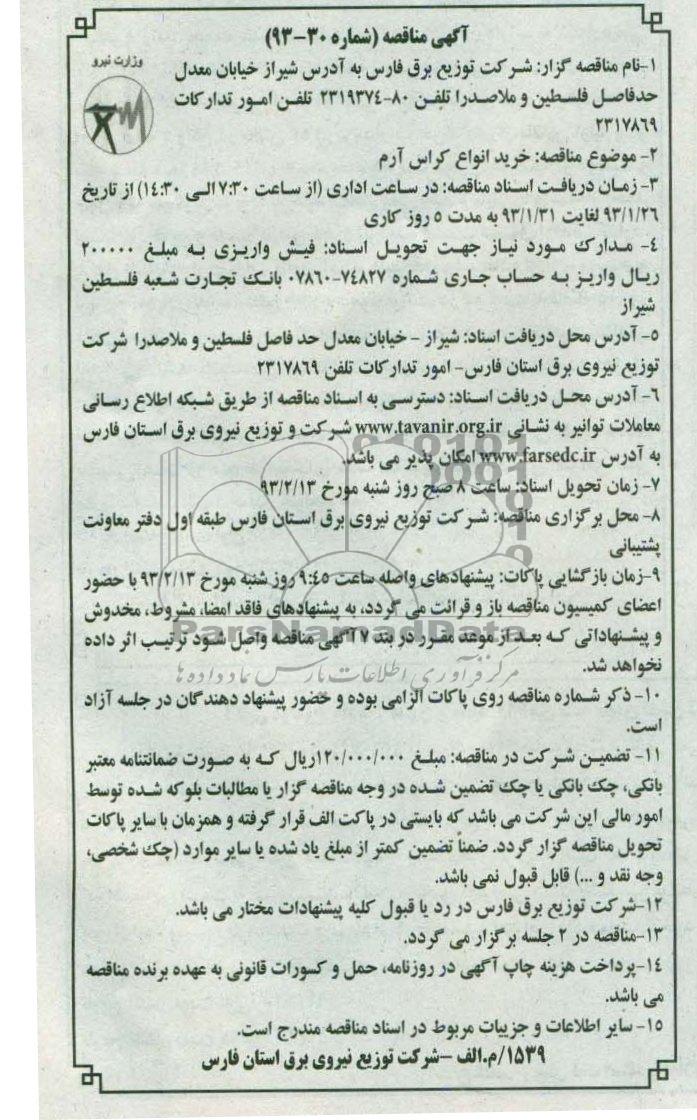 آگهی مناقصه (شماره ۳۰-۹۳)
وزارت نیرو
۱-نام مناقصه گزار: شرکت توزیع برق فارس به آدرس شیراز خیابان معدل
حدفاصل فلسطین و ملاصدرا تلفن ۸۰-۲۳۱۹۳۷٤ تلفن امور تدارکات
۲۳۱۷۸٦۹
۲- موضوع مناقصه: خرید انواع کراس آرم
۳- زمان دریافت اسناد مناقصه: در ساعت اداری (از ساعت ۷:۳۰ الی ۱٤:۳۰) از تاریخ
۹۳/۱/۲٦ لغایت ۹۳/۱/۳۱ به مدت ٥ روز کاری
٤- مدارک مورد نیاز جهت تحویل اسناد: فیش واریزی به مبلغ ۲۰۰۰۰۰
ریال واریز به حساب جاری شماره ۷٤۸۲۷-۰۷۸٦۰ بانک تجارت شعبه فلسطین
شیراز
٥- آدرس محل دریافت اسناد: شیراز - خیابان معدل حد فاصل فلسطین و ملاصدرا شرکت
توزیع نیروی برق استان فارس- امور تدارکات تلفن ۲۳۱۷۸٦۹
٦- آدرس محل دریافت اسناد: دسترسی به اسناد مناقصه از طریق شبکه اطلاع رسانی
معاملات توانیر به نشانی www.tavanir.org.ir شرکت و توزیع نیروی برق استان فارس
به آدرس www.farsedc.ir امکان پذیر می باشد.
۷- زمان تحویل اسناد: ساعت ۸ صبح روز شنبه مورخ ۹۳/۲/۱۳
۸- محل برگزاری مناقصه: شرکت توزیع نیروی برق استان فارس طبقه اول دفتر معاونت
پشتیبانی
۹-زمان بازگشایی پاکات: پیشنهادهای واصله ساعت ۹:٤٥ روز شنبه مورخ ۹۳/۲/۱۳ با حضور
اعضای کمیسیون مناقصه باز و قرائت می گردد، به پیشنهادهای فاقد امضا، مشروط، مخدوش
و پیشنهاداتی که بعد از موعد مقرر در بند ۷ آگهی مناقصه واصل شود ترتیب اثر داده
نخواهد شد.
ParsNamadData
مرکز فرآوری اطلاعات پارس نماد داده ها
۱۰- ذکر شماره مناقصه روی پاکات الزامی بوده و حضور پیشنهاد دهندگان در جلسه آزاد
است.
۱۱- تضمین شرکت در مناقصه: مبلغ ۱۲۰/۰۰۰/۰۰۰ریال که به صورت ضمانتنامه معتبر
بانکی، چک بانکی یا چک تضمین شده در وجه مناقصه گزار یا مطالبات بلوکه شده توسط
امور مالی این شرکت می باشد که بایستی در پاکت الف قرار گرفته و همزمان با سایر پاکات
تحویل مناقصه گزار گردد. ضمناً تضمین کمتر از مبلغ یاد شده یا سایر موارد (چک شخصی،
وجه نقد و ...) قابل قبول نمی باشد.
۱۲-شرکت توزیع برق فارس در رد یا قبول کلیه پیشنهادات مختار می باشد.
۱۳-مناقصه در ۲ جلسه برگزار می گردد.
۱٤-پرداخت هزینه چاپ آگهی در روزنامه، حمل و کسورات قانونی به عهده برنده مناقصه
می باشد.
۱٥- سایر اطلاعات و جزییات مربوط در اسناد مناقصه مندرج است.
۱٥۳۹/م.الف -شرکت توزیع نیروی برق استان فارس